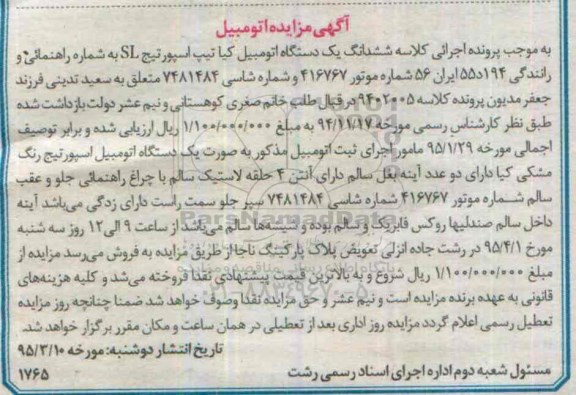 آگهی مزایده اتومبیل
به موجب پرونده اجرائی کلاسه ششدانگ یک دستگاه اتومبیل کیا تیپ اسپورتیج SL به شماره راهنمائی و
رانندگی ۱۹۴د۵۵ ایران ۵۶ شماره موتور ۴۱۶۷۶۷ و شماره شاسی ۷۴۸۱۴۸۴ متعلق به سعید تدینی فرزند
جعفر مدیون پرونده کلاسه ۹۴۰۲۰۰۵ در قبال طلب خانم صغری کوهستانی و نیم عشر دولت بازداشت شده
طبق نظر کارشناس رسمی مورخه ۹۴/۱۱/۱۷ به مبلغ ۱/۱۰۰/۰۰۰/۰۰۰ ریال ارزیابی شده و برابر توصیف
اجمالی مورخه ۹۵/۱/۲۹ مامور اجرای ثبت اتومبیل مذکور به صورت یک دستگاه اتومبیل اسپورتیج رنگ
مشکی کیا دارای دو عدد آینه بغل سالم دارای آنتن ۴ حلقه لاستیک سالم با چراغ راهنمائی جلو و عقب
سالم شماره موتور ۴۱۶۷۶۷ شماره شاسی ۷۴۸۱۴۸۴ سپر جلو سمت راست دارای زدگی می‌باشد آینه
داخل سالم صندلیها روکس فابریک و سالم بوده و شیشه‌ها سالم می‌باشد از ساعت ۹ الی ۱۲ روز سه شنبه
مورخ ۹۵/۴/۱ در رشت جاده انزلی تعویض پلاک پارکینگ ناجا از طریق مزایده به فروش می‌رسد مزایده از
مبلغ ۱/۱۰۰/۰۰۰/۰۰۰ ریال شروع و به بالاترین قیمت پیشنهادی نقدا فروخته می‌شد و کلیه هزینه‌های
قانونی به عهده برنده مزایده است و نیم عشر و حق مزایده نقدا وصوف خواهد شد ضمنا چنانچه روز مزایده
تعطیل رسمی اعلام گردد مزایده روز اداری بعد از تعطیلی در همان ساعت و مکان مقرر برگزار خواهد شد.
تاریخ انتشار دوشنبه: مورخه ۹۵/۳/۱۰
مسئول شعبه دوم اداره اجرای اسناد رسمی رشت
۱۷۶۵
ParsNamadData